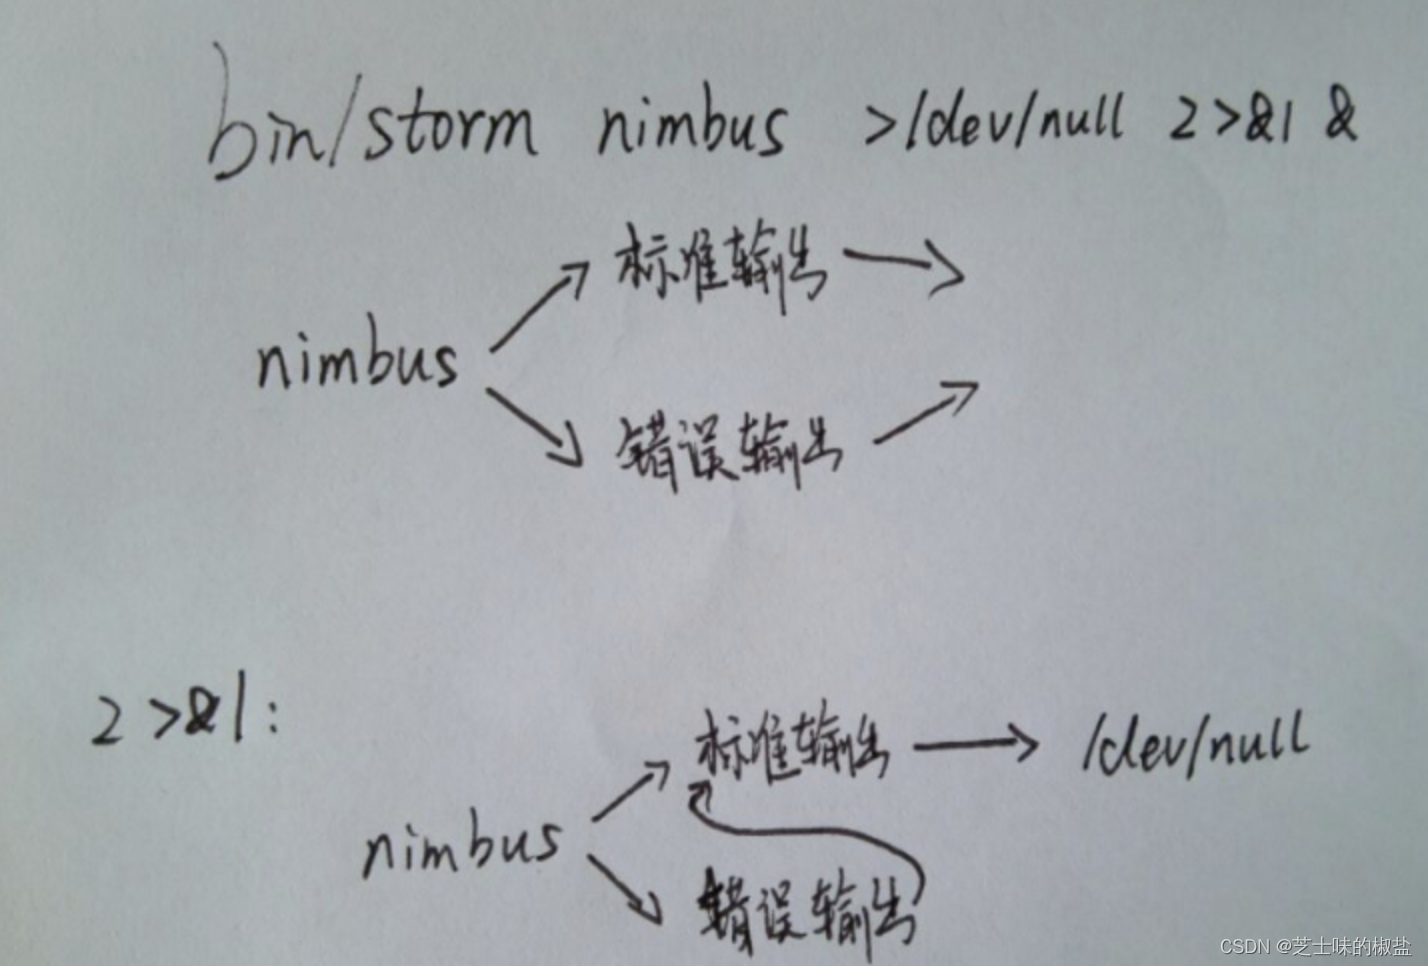 bin/storm nimbus >/dev/null 2>&1 &
标准输出
nimbus
错误输出
2>&1:
标准输出 /dev/null
nimbus
错误输出
CSDN @芝士味的椒盐